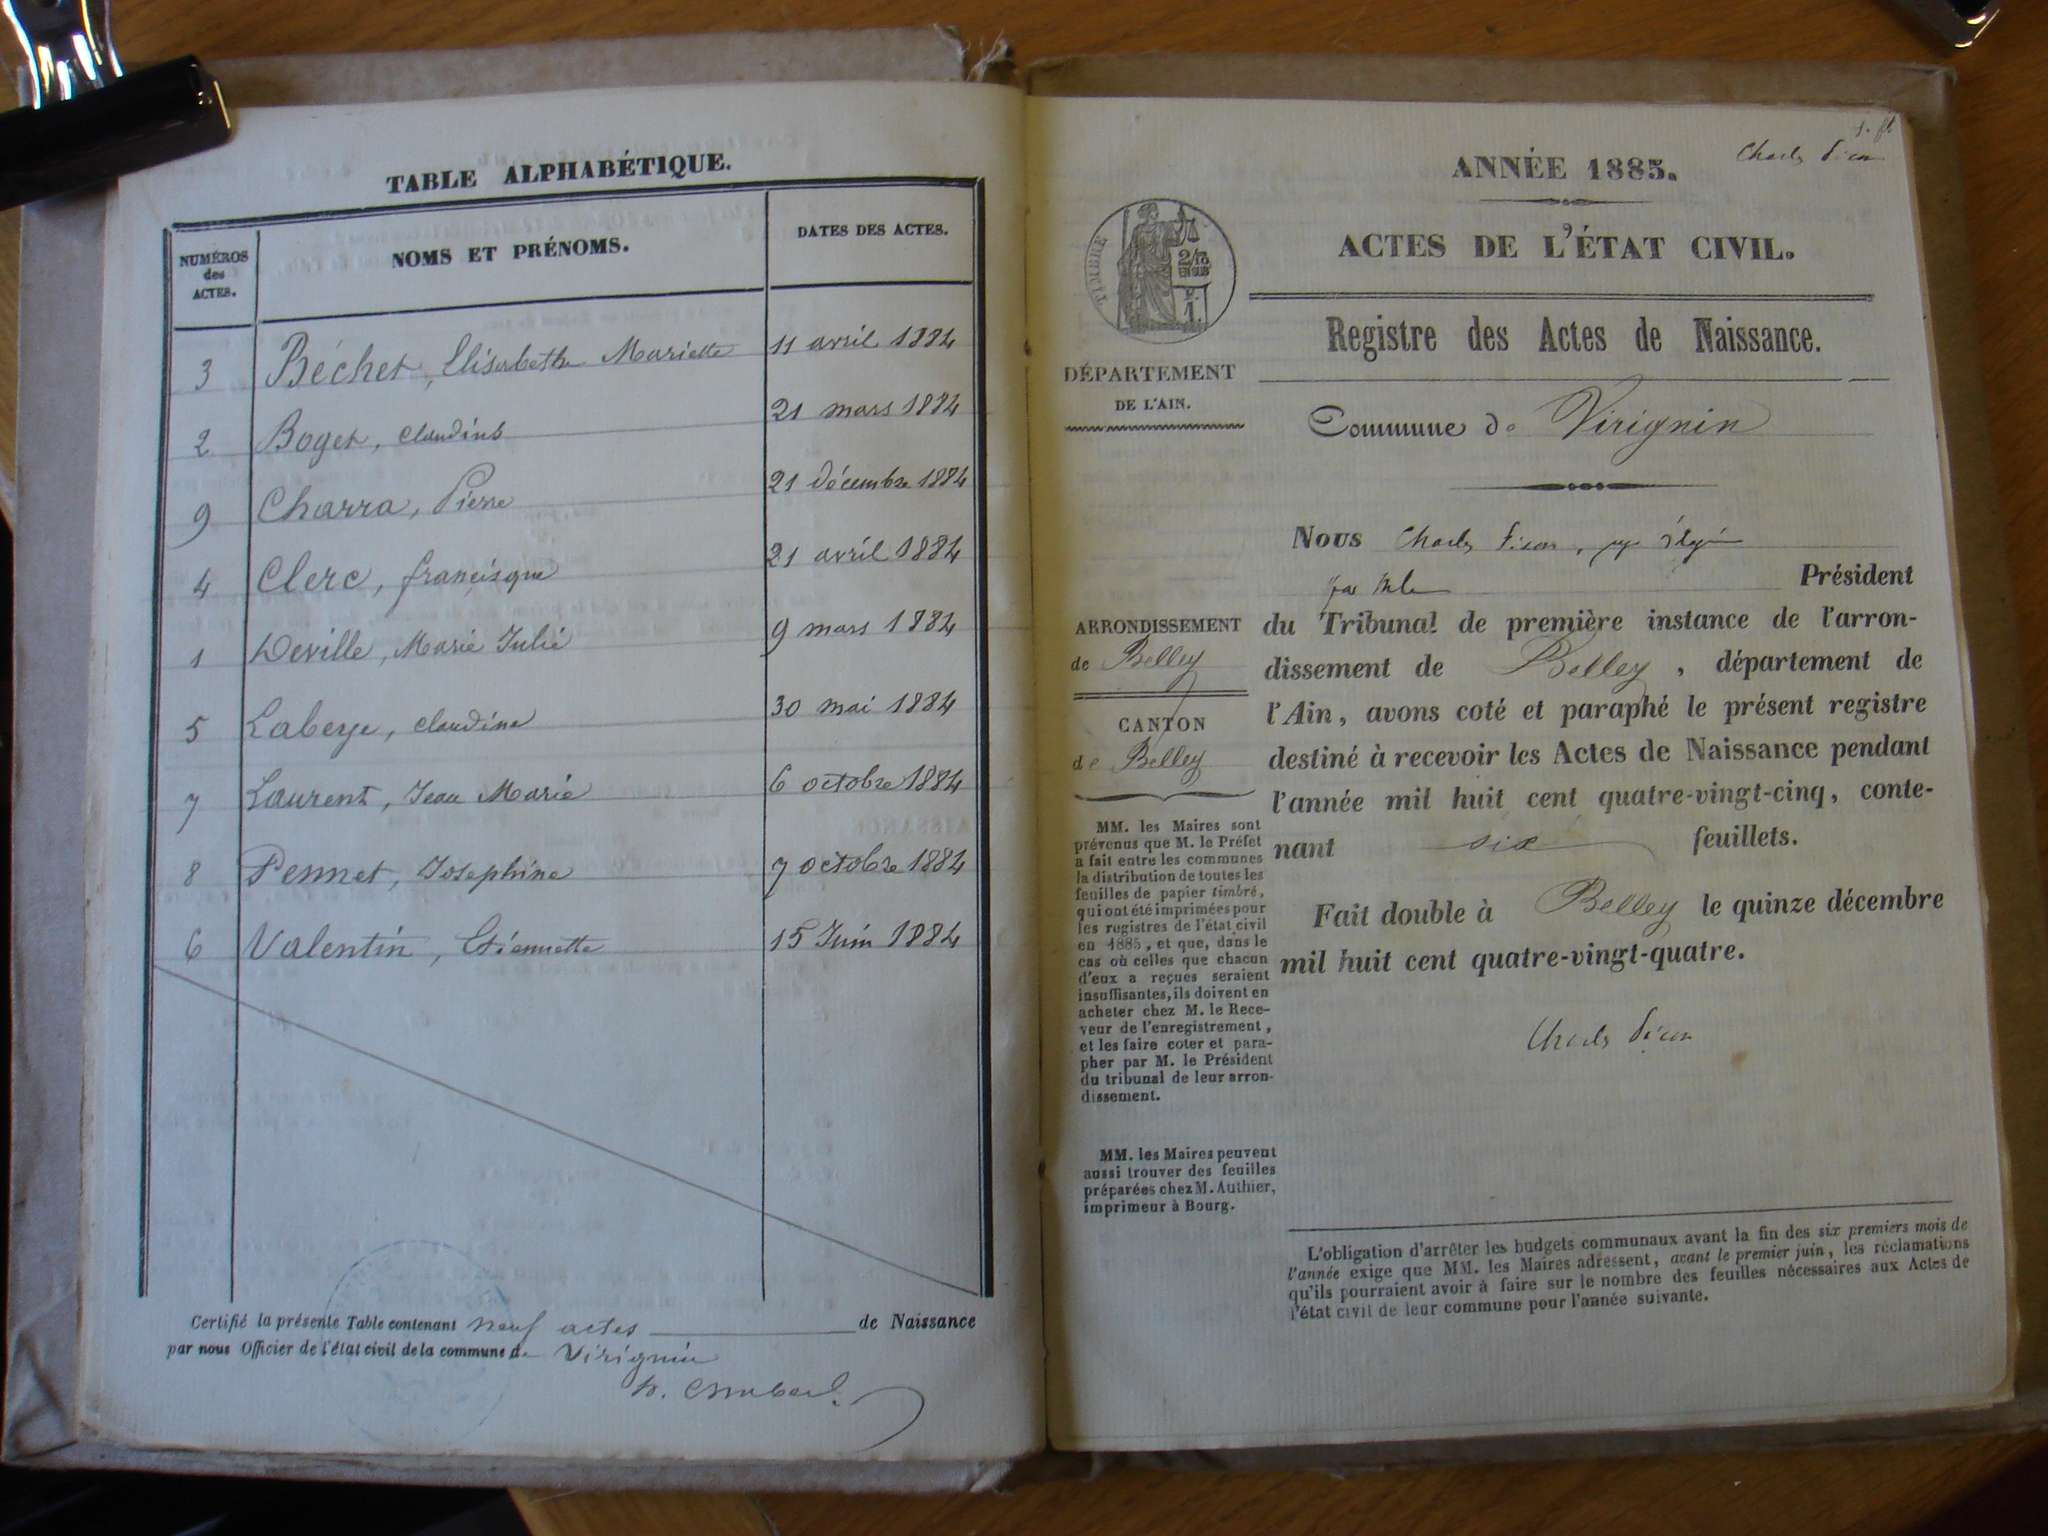 TABLE ALPHABÉTIQUE.
NUMÉROS des ACTES. NOMS ET PRÉNOMS. DATES DES ACTES.
3 Béchet, Elisabeth Mariette 11 avril 1884
2 Boget, Claudius 21 mars 1884
9 Charra, Pierre 21 décembre 1884
4 Clerc, françisque 21 avril 1884
1 Deville, Marie Julie 9 mars 1884
5 Labeye, Claudine 30 mai 1884
7 Laurent, Jean Marie 6 octobre 1884
8 Pennet, Josephine 7 octobre 1884
6 Valentin, Etiennette 15 Juin 1884
Certifié la présente Table contenant neuf actes de Naissance
par nous Officier de l'état civil de la commune de Virignin
1. ft
Charles
ANNÉE 1885.
ACTES DE L'ÉTAT CIVIL.
TIMBRE
2/10 EN SUS
1.
Registre des Actes de Naissance.
DÉPARTEMENT
DE L'AIN.
Commune de Virignin
Nous Charles
Président
ARRONDISSEMENT
de Belley
CANTON
de Belley
du Tribunal de première instance de l'arron-
dissement de Belley, département de
l'Ain, avons coté et paraphé le présent registre
destiné à recevoir les Actes de Naissance pendant
l'année mil huit cent quatre-vingt-cinq, conte-
nant six feuillets.
Fait double à Belley le quinze décembre
mil huit cent quatre-vingt-quatre.
Charles
MM. les Maires sont
prévenus que M. le Préfet
a fait entre les communes
la distribution de toutes les
feuilles de papier timbré,
qui ont été imprimées pour
les registres de l'état civil
en 1885, et que, dans le
cas où celles que chacun
d'eux a reçues seraient
insuffisantes, ils doivent en
acheter chez M. le Rece-
veur de l'enregistrement,
et les faire coter et para-
pher par M. le Président
du tribunal de leur arron-
dissement.
MM. les Maires peuvent
aussi trouver des feuilles
préparées chez M. Authier,
imprimeur à Bourg.
L'obligation d'arrêter les budgets communaux avant la fin des six premiers mois de
l'année exige que MM. les Maires adressent, avant le premier juin, les réclamations
qu'ils pourraient avoir à faire sur le nombre des feuilles nécessaires aux Actes de
l'état civil de leur commune pour l'année suivante.